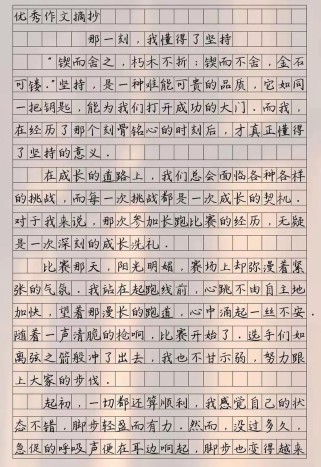 优秀作文摘抄
那一刻，我懂得了坚持
"锲而舍之，朽木不折；锲而不舍，金石
可镂."坚持，是一种难能可贵的品质，它如同
一把钥匙，能为我们打开成功的大门.而我，
在经历了那个刻骨铭心的时刻后，才真正懂得
了坚持的意义.
在成长的道路上，我们总会面临各种各样
的挑战，而每一次挑战都是一次成长的契机.
对于我来说，那次参加长跑比赛的经历，无疑
是一次深刻的成长洗礼.
比赛那天，阳光明媚，赛场上却弥漫着紧
张的气氛.我站在起跑线前，心跳不由自主地
加快，望着那漫长的跑道，心中涌起一丝不安.
随着一声清脆的枪响，比赛开始了，选手们如
离弦之箭般冲了出去，我也不甘示弱，努力跟
上大家的步伐.
起初，一切都还算顺利，我感觉自己的状
态不错，脚步轻盈而有力.然而，没过多久，
急促的呼吸声便在耳边响起，脚步也变得越来